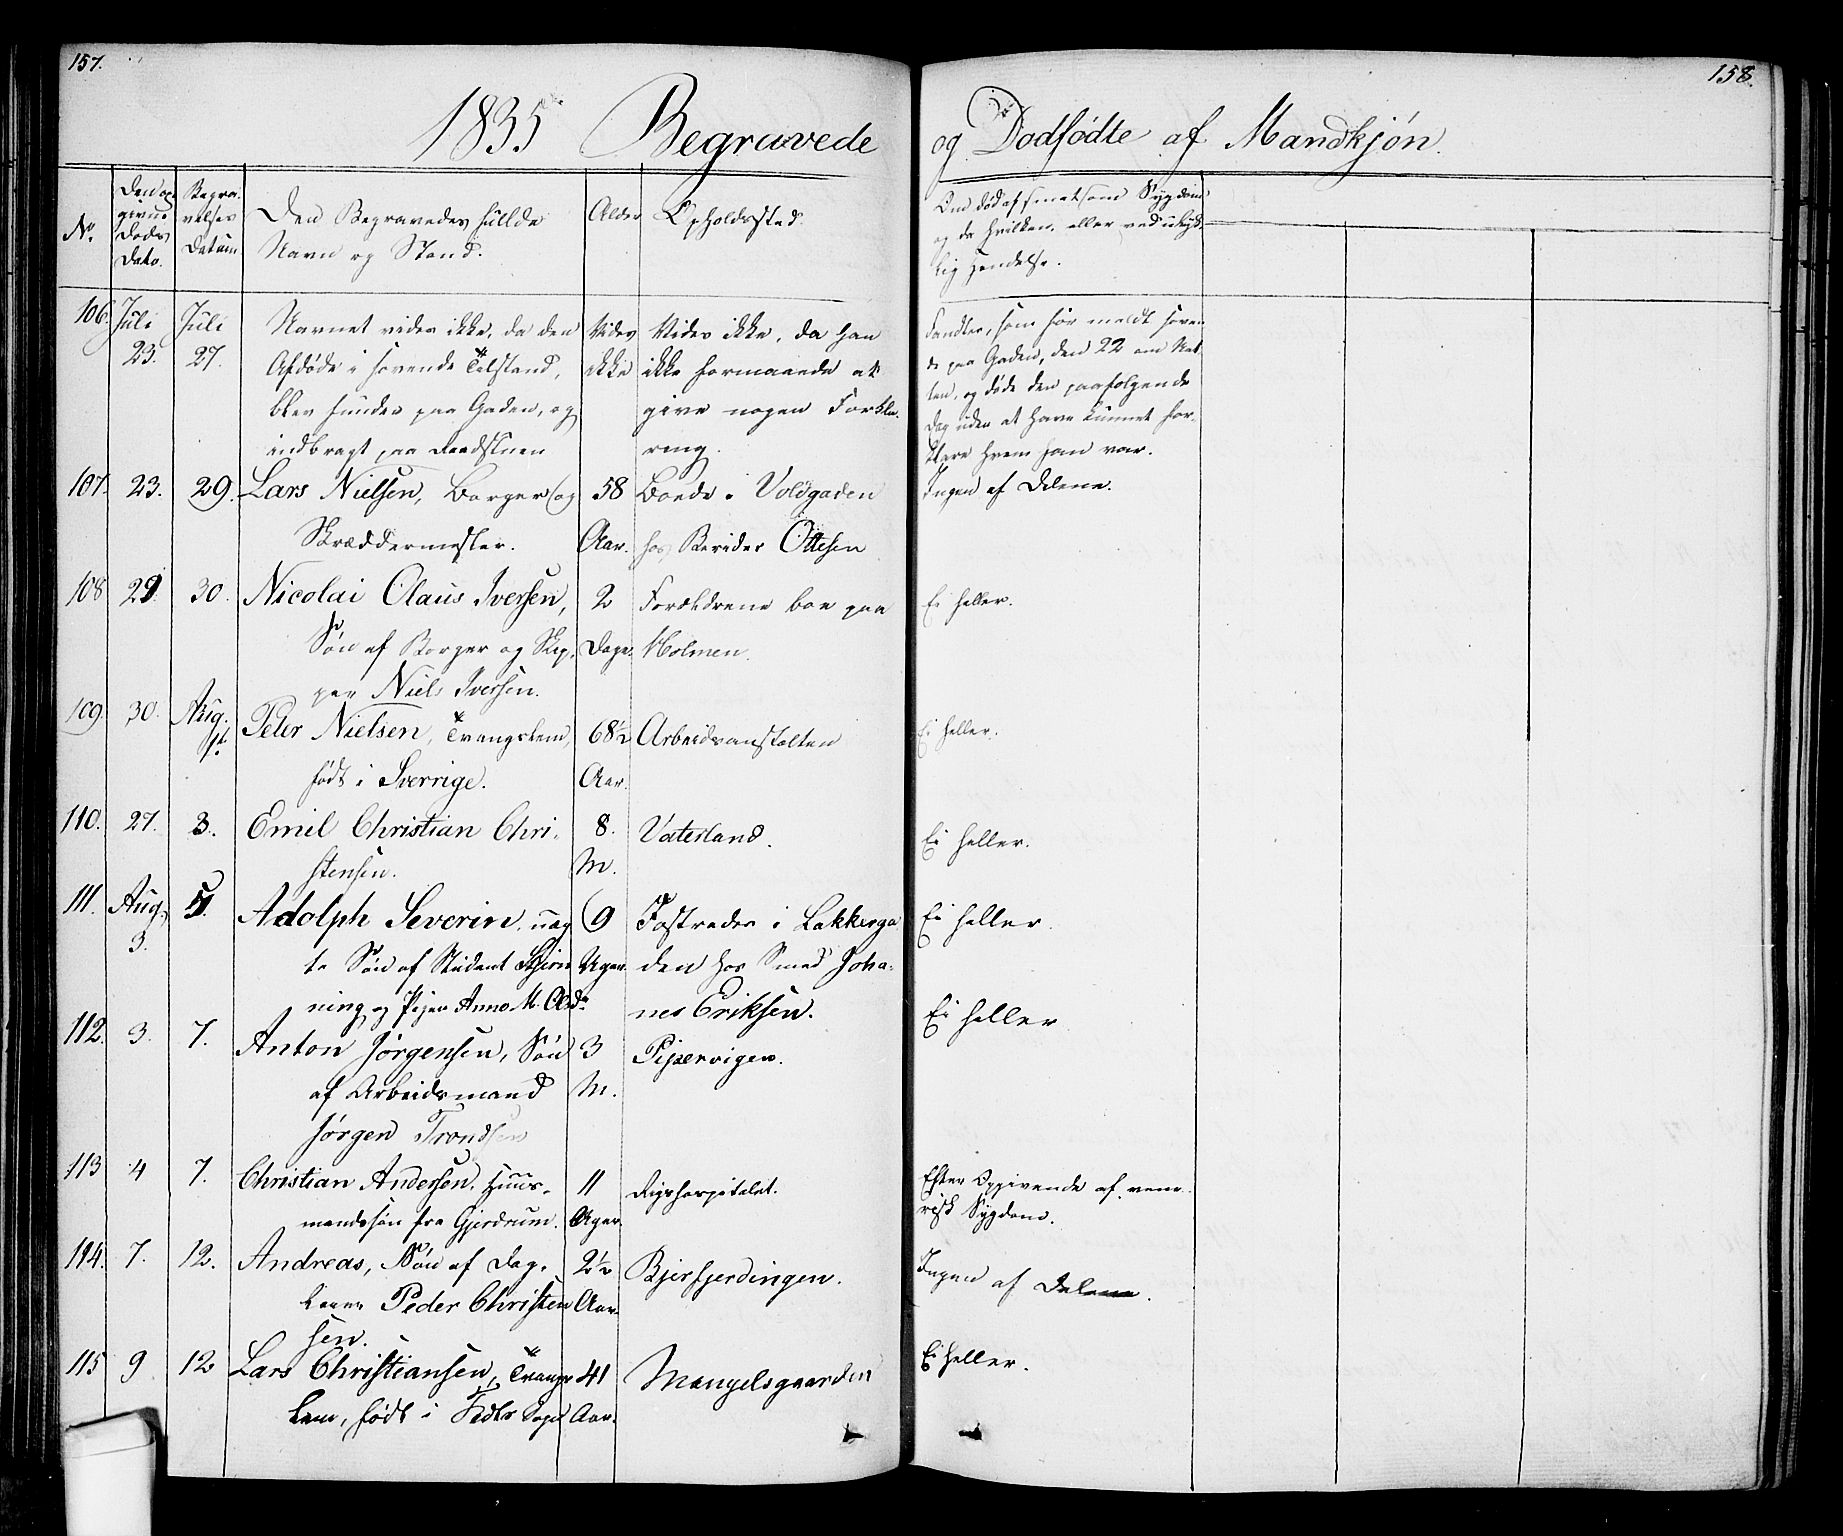 157.
158.
1835 Begravede
og Dødfødte af Mandkjøn.
No.
Den op-
givne
Døds
Dato.
Begra-
velses
Datum
Den Begravedes fulde
Navn og Stand.
Alder
Opholdssted.
Om død af smitsom Sygdom
og da hvilken, eller ved ulyk-
lig Hendelse.
106. Juli 23. Juli 27.
Navnet vides ikke, da den
Afdøde i sovende Tilstand,
blev funden paa Gaden, og
indbragt paa Raadstuen
Vides
ikke
Vides ikke, da han
ikke formaaede at
give nogen Forkla-
ring.
Fandtes, som før meldt soven-
de paa Gaden, den 22 om Nat-
ten, og døde den paafølgende
Dag uden at have kunnet for-
klare hvem han var.
107. 23. 29. Lars Nielsen, Borger og
Skræddermester.
58
Aar.
Boede i Voldgaden
hos Berider Ottesen
Ingen af Delene.
108 29. 30. Nicolai Claus Iversen,
Søn af Borger og Skip-
per Niels Iversen.
2
Dage.
Forældrene boe paa
Holmen.
Ei heller.
109. 30. Aug. 1st.
Peter Nielsen, Tvangslem,
født i Sverrige.
68½
Aar.
Arbeidsanstalten
Ei heller.
110. 27. 3. Emil Christian Chri-
stensen.
8.
M.
Vaterland.
Ei heller.
111. Aug. 3. 5. Adolph Severin, uæg-
te Søn af Student
ning og Pigen Anne M.
9
Uger.
Fostredes i Lakkerga-
den hos Smed Joha-
nes Eriksen.
Ei heller.
112. 3. 7. Anton Jørgensen, Søn
af Arbeidsmand
Jørgen Trondsen
3
M.
Pipervigen.
Ei heller
113 4 7. Christian Andersen, Huus-
mandssøn fra Gjerdrum.
11
Uger.
Rigshospitalet.
Efter Opgivende af vene-
risk Sygdom.
114. 7. 12. Andreas, Søn af Dag-
leier Peder Christen
sen.
2½
Aar.
Bjerfjerdingen.
Ingen af Delene.
115 9 12 Lars Christiansen, Tvangs-
lem, født i Sogn
41
Aar.
Mangelsgaarden
Ei heller.